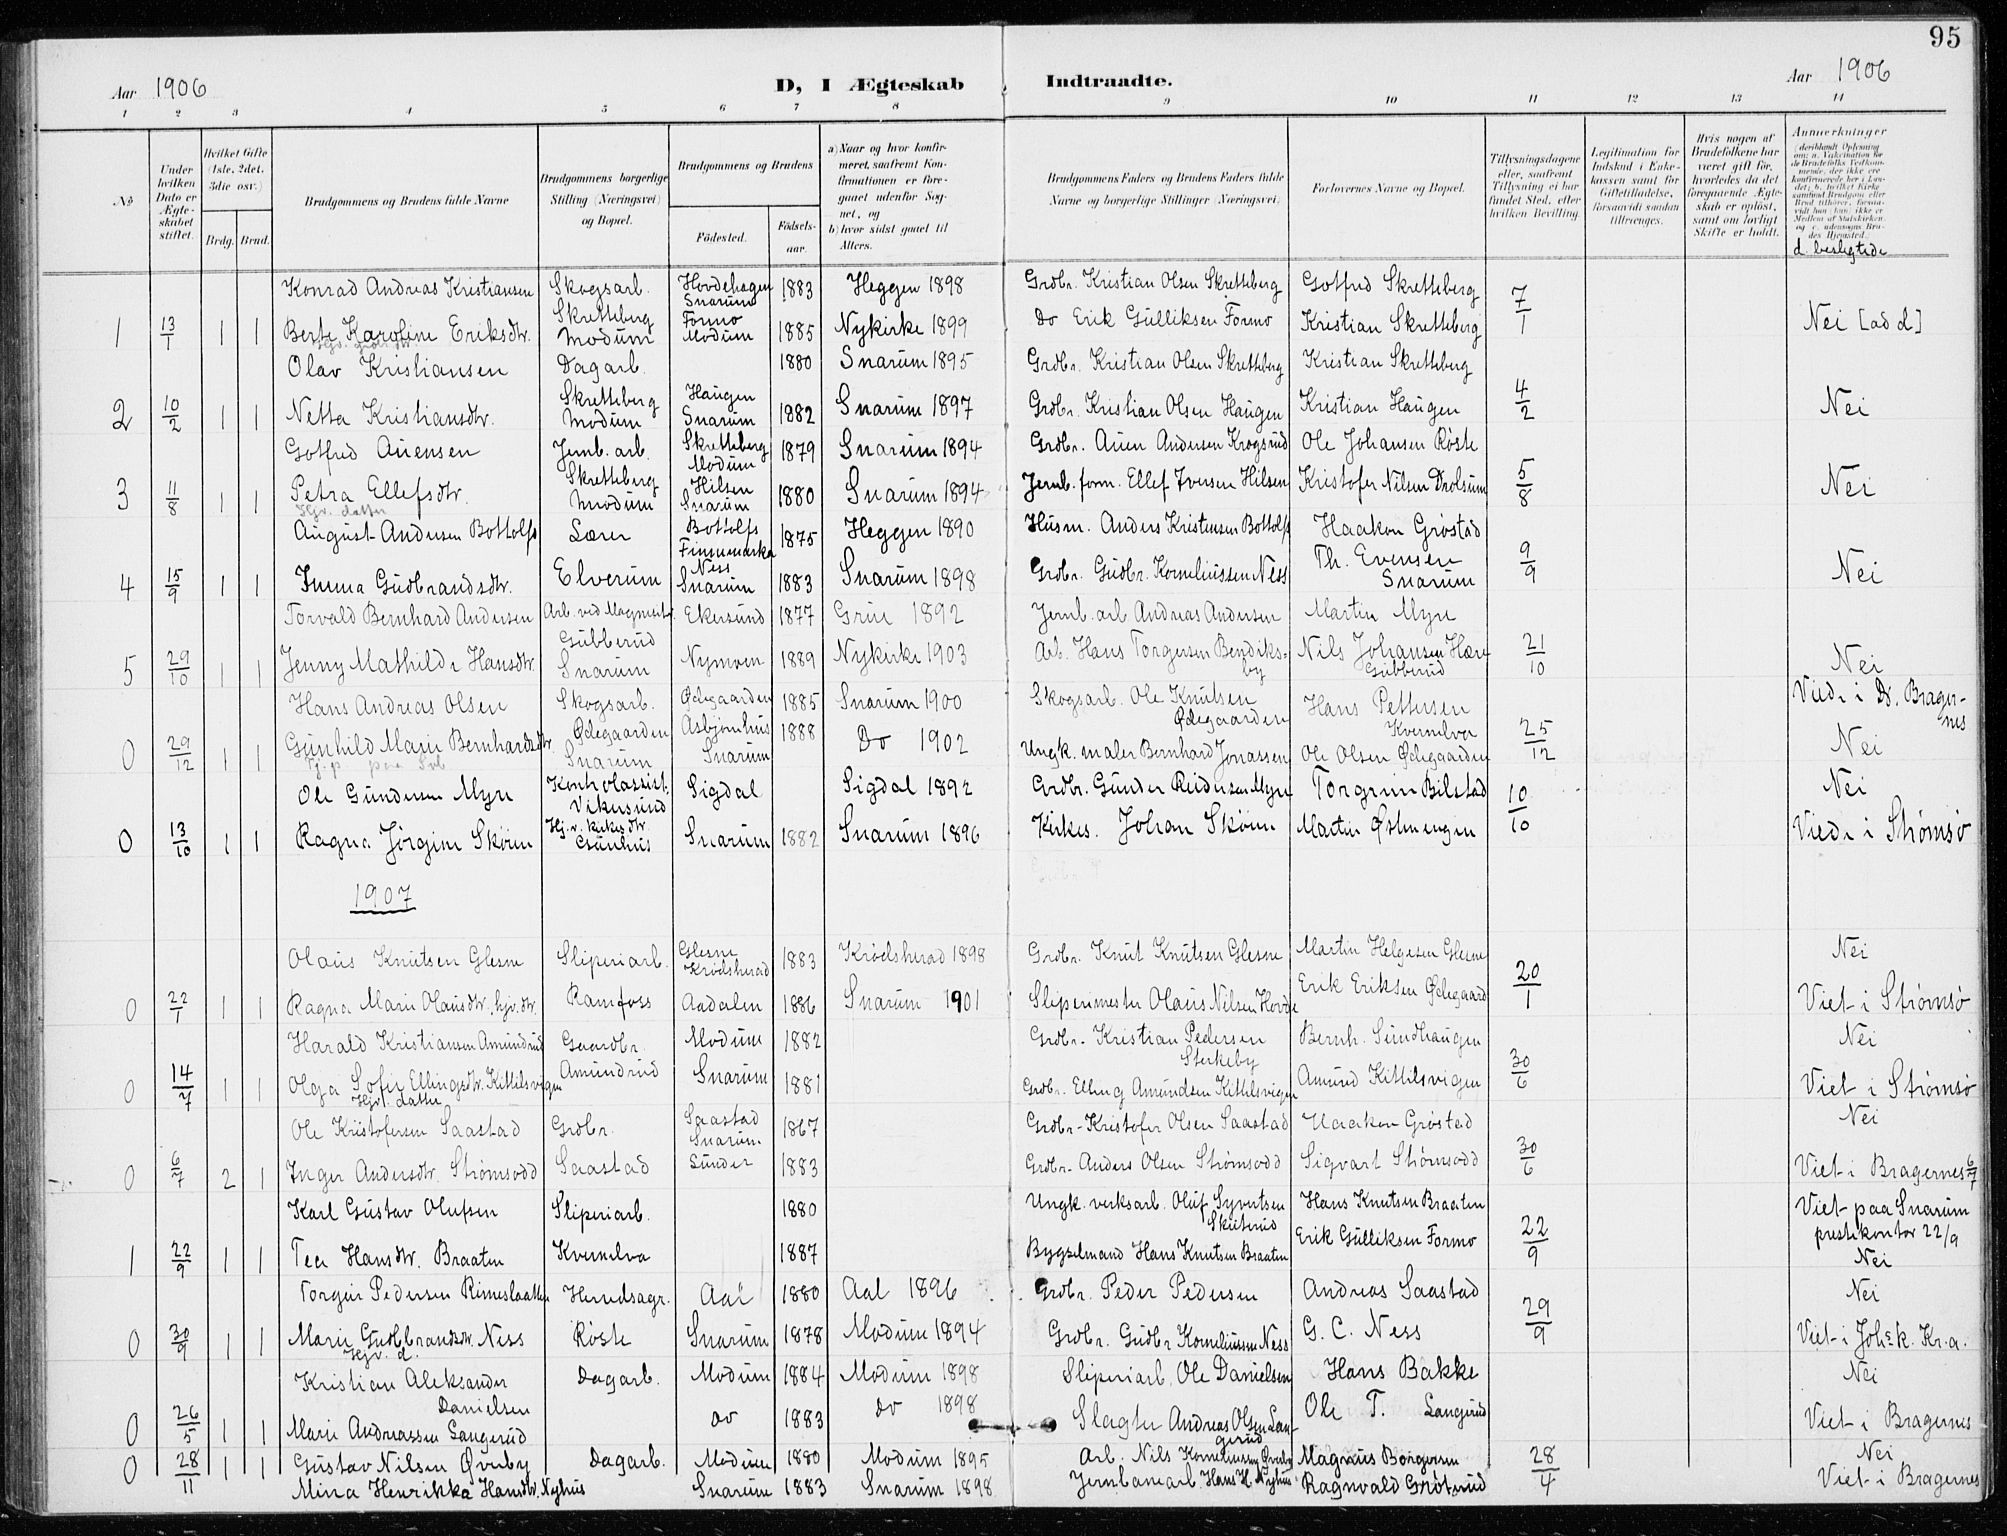 95
Aar 1906
D, I Ægteskab Indtraadte.
Aar 1906
1 2 3 4 5 6 7 8 9 10 11 12 13 14
No
Under hvilken Dato er Ægteskabet stiftet.
Hvilket Gifte (1ste, 2det, 3die osv.)
Brdg. Brud.
Brudgommens og Brudens fulde Navne
Brudgommens borgerlige Stilling (Næringsvei) og Bopæl.
Brudgommens og Brudens
Födested.
Födselsaar.
a) Naar og hvor konfirmeret, saafremt Konfirmationen er foregaaet udenfor Sognet, og
b) hvor sidst gaaet til Alters.
Brudgommens Faders og Brudens Faders fulde Navne og borgerlige Stillinger (Næringsvei)
Forlovernes Navne og Bopæl.
Tillysningsdagene eller, saafremt Tillysning ei har fundet Sted, efter hvilken Bevilling.
Legitimation for Indskud i Enkekassen samt for Giftetilladelse, forsaavidt saadan tiltrænges.
Hvis nogen af Brudefolkene har været gift för, hvorledes da det foregaaende Ægteskab er oplöst, samt om lovligt Skifte er holdt.
Anmerkninger
d. beslegtede
Konrad Andreas Kristiansen Skogsarb. Hovdehagen Snarum 1883 Heggen 1898 Grdbr. Kristian Olsen Skretteberg Gotfred Skretteberg 7/1
1 13/1 1 1 Berte Karoline Eriksdtr. Skretteberg Modum Formo Modum 1885 Nykirke 1899 Do Erik Gulliksen Formo Kristian Skretteberg Nei [ad d]
Olav Kristiansen Dagarb. 1880 Snarum 1895 Grdbr. Kristian Olsen Skretteberg Kristian Skretteberg
2 10/2 1 1 Netta Kristiansdtr. Skretteberg Modum Haugen Snarum 1882 Snarum 1897 Grdbr. Kristian Olsen Haugen Kristian Haugen 4/2 Nei
Gotfred Auensen Jernb. arb. Skretteberg Modum 1879 Snarum 1894 Grdbr. Auen Andersen Krogsrud Ole Johansen Røste
3 11/8 1 1 Petra Ellefsdtr. Skretteberg Modum Hilsen Snarum 1880 Snarum 1894 Jernb. form. Ellef Iversen Hilsen Kristofer Nilsen Drolsum 5/8 Nei
Hjv. datter
August Andersen Bottolfs Lærer Bottolfs Finnemarka 1875 Heggen 1890 Husm. Anders Kristensen Bottolfs Haakon Grøstad
4 15/9 1 1 Inma Gudbrandsdtr. Elverum Ness Snarum 1883 Snarum 1898 Grdbr. Gudbr. Korneliussen Ness Th. Evensen Snarum 9/9 Nei
Torvald Bernhard Andersen Arb. ved Magnesitv. Ekersund 1877 Grue 1892 Jernb. arb Andreas Andersen Martin Myre
5 29/10 1 1 Jenny Mathilde Hansdtr. Gubberud Snarum Nymoen 1889 Nykirke 1903 Arb. Hans Torgersen Bendiksby Nils Johansen Hære Gubberud 21/10 Nei
Hans Andreas Olsen Skogsarb. Ødegaarden 1885 Snarum 1900 Skogsarb. Ole Knutsen Ødegaarden Hans Pettersen Kvernelva Viede i Dr. Bragernes
0 29/12 1 1 Gunhild Marie Bernhardsdtr. Ødegaarden Snarum Asbjørnhus Snarum 1888 Do 1902 Ungk. maler Bernhard Jonassen Ole Olsen Ødegaarden 25/12 Nei
Ole Gundersen Myre Kontrolassist. Vikersund Sigdal Sigdal 1892 Grdbr. Gunder Reidersen Myre Torgrim Bilstad Nei
0 13/10 1 1 Ragna Jørgine Skøien Hj.v. kirkes dtr. Snarum 1882 Snarum 1896 Kirkes. Johan Skøien Martin Østmengen 10/10 Viede i Strømsø
1907
Olaus Knutsen Glesne Sliperiarb. Glesne Krødsherad 1883 Krødsherad 1898 Grdbr. Knut Knutsen Glesne Martin Helgesen Glesne Nei
0 22/1 1 1 Ragna Marie Olausdtr. hjv. dtr. Ramfoss Aadalen 1886 Snarum 1901 Sliperimester Olaus Nilsen Hovde Erik Eriksen Ødegaard 20/1 Viet i Strømsø
Harald Kristiansen Amundrud Gaardbr. Modum 1882 Grdbr. Kristian Pedersen Sterkeby Bernh. Sundhaugen Nei
0 14/7 1 1 Olga Sofie Ellingsdtr. Kittilsvigen Amundrud Snarum 1881 Grdbr. Elling Amundsen Kittilsvigen Amund Kittilsvigen 30/6 Viet i Strømsø
Hjv. datter
Ole Kristofersen Saastad Grdbr. Saastad Snarum 1867 Grdbr. Kristofer Olsen Saastad Haakon Grøstad Nei
0 6/7 2 1 Inger Andersdtr. Strømsodd Saastad Sunder 1883 Grdbr. Anders Olsen Strømsodd Sigvart Strømsodd 30/6 Viet i Bragernes 6/7
Karl Gustav Olufsen Sliperiarb. 1880 Ungk. verksarb. Oluf Syvertsen Skuterud Hans Knutsen Braaten Viet paa Snarum prestekontor 22/9
1 22/9 1 1 Tea Hansdtr. Braaten Kvernelva 1887 Bygselmand Hans Knutsen Braaten Erik Gulliksen Formo 22/9 Nei
Torgeir Pedersen Rimeslaatten Herredsagr. Aal 1880 Aal 1896 Grdbr. Peder Pedersen Andreas Saastad Nei
0 30/9 1 1 Marie Gudbrandsdtr. Ness Røste Snarum 1878 Modum 1894 Grdbr. Gudbr Korneliussen Ness G. C. Ness 29/9 Viet i Johs. k. Kr.a.
Hjv. d.
Kristian Aleksander Danielsen Dagarb. Modum 1884 Modum 1898 Sliperiarb. Ole Danielsen Hans Bakke Nei
0 26/5 1 1 Marie Andreassen Langerud do 1883 do 1898 Slagter Andreas Olsen Langerud Ole T. Langerud Viet i Bragernes
0 28/11 1 1 Gustav Nilsen Øverby Dagarb. Modum 1880 Modum 1895 Arb. Nils Korneliussen Øverby Magnus Borgersen 28/4 Nei
Mina Henrikka Hansdtr. Nyhus Snarum 1883 Snarum 1898 Jernbanearb. Hans H. Nyhus Ragnvald Grøterud Viet i Bragernes